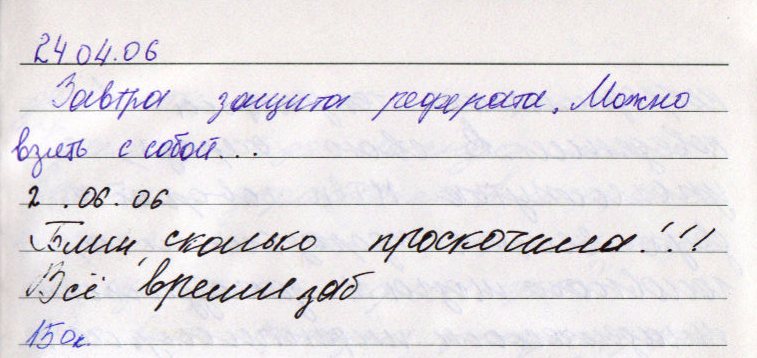 24 04.06
Завтра защита реферата. Можно
взять с собой...
2 .06.06
Блин, сколько проскочила!!!
Всё время заб